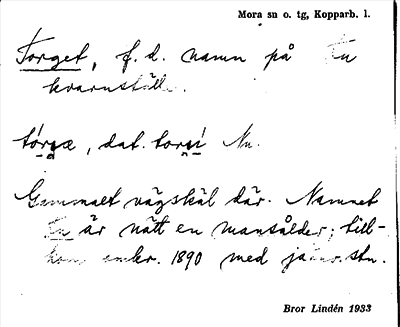 Mora sn o. tg, Kopparb. l.
Torget, f. d. namn på En
kvarnställe.
tórgæ, dat. torgí Nu.
Gammalt vägskäl där. Namnet
är nätt en mansålder; till-
kom omkr. 1890 med järnv.stn.
Bror Lindén 1933